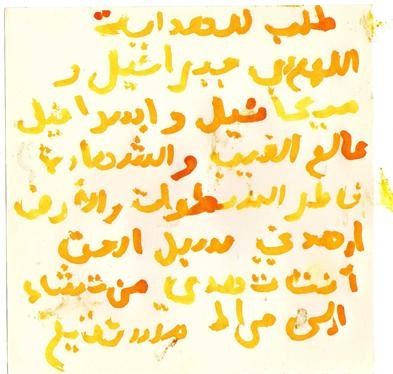 طلب للهداية
اللهم جبرائيل و
ميكائيل و اسرافيل
عالم الغيب والشهادة
فاطر السطوات والارض
اهدني
أنت تهدي من تشاء
الى صراط مستقيم